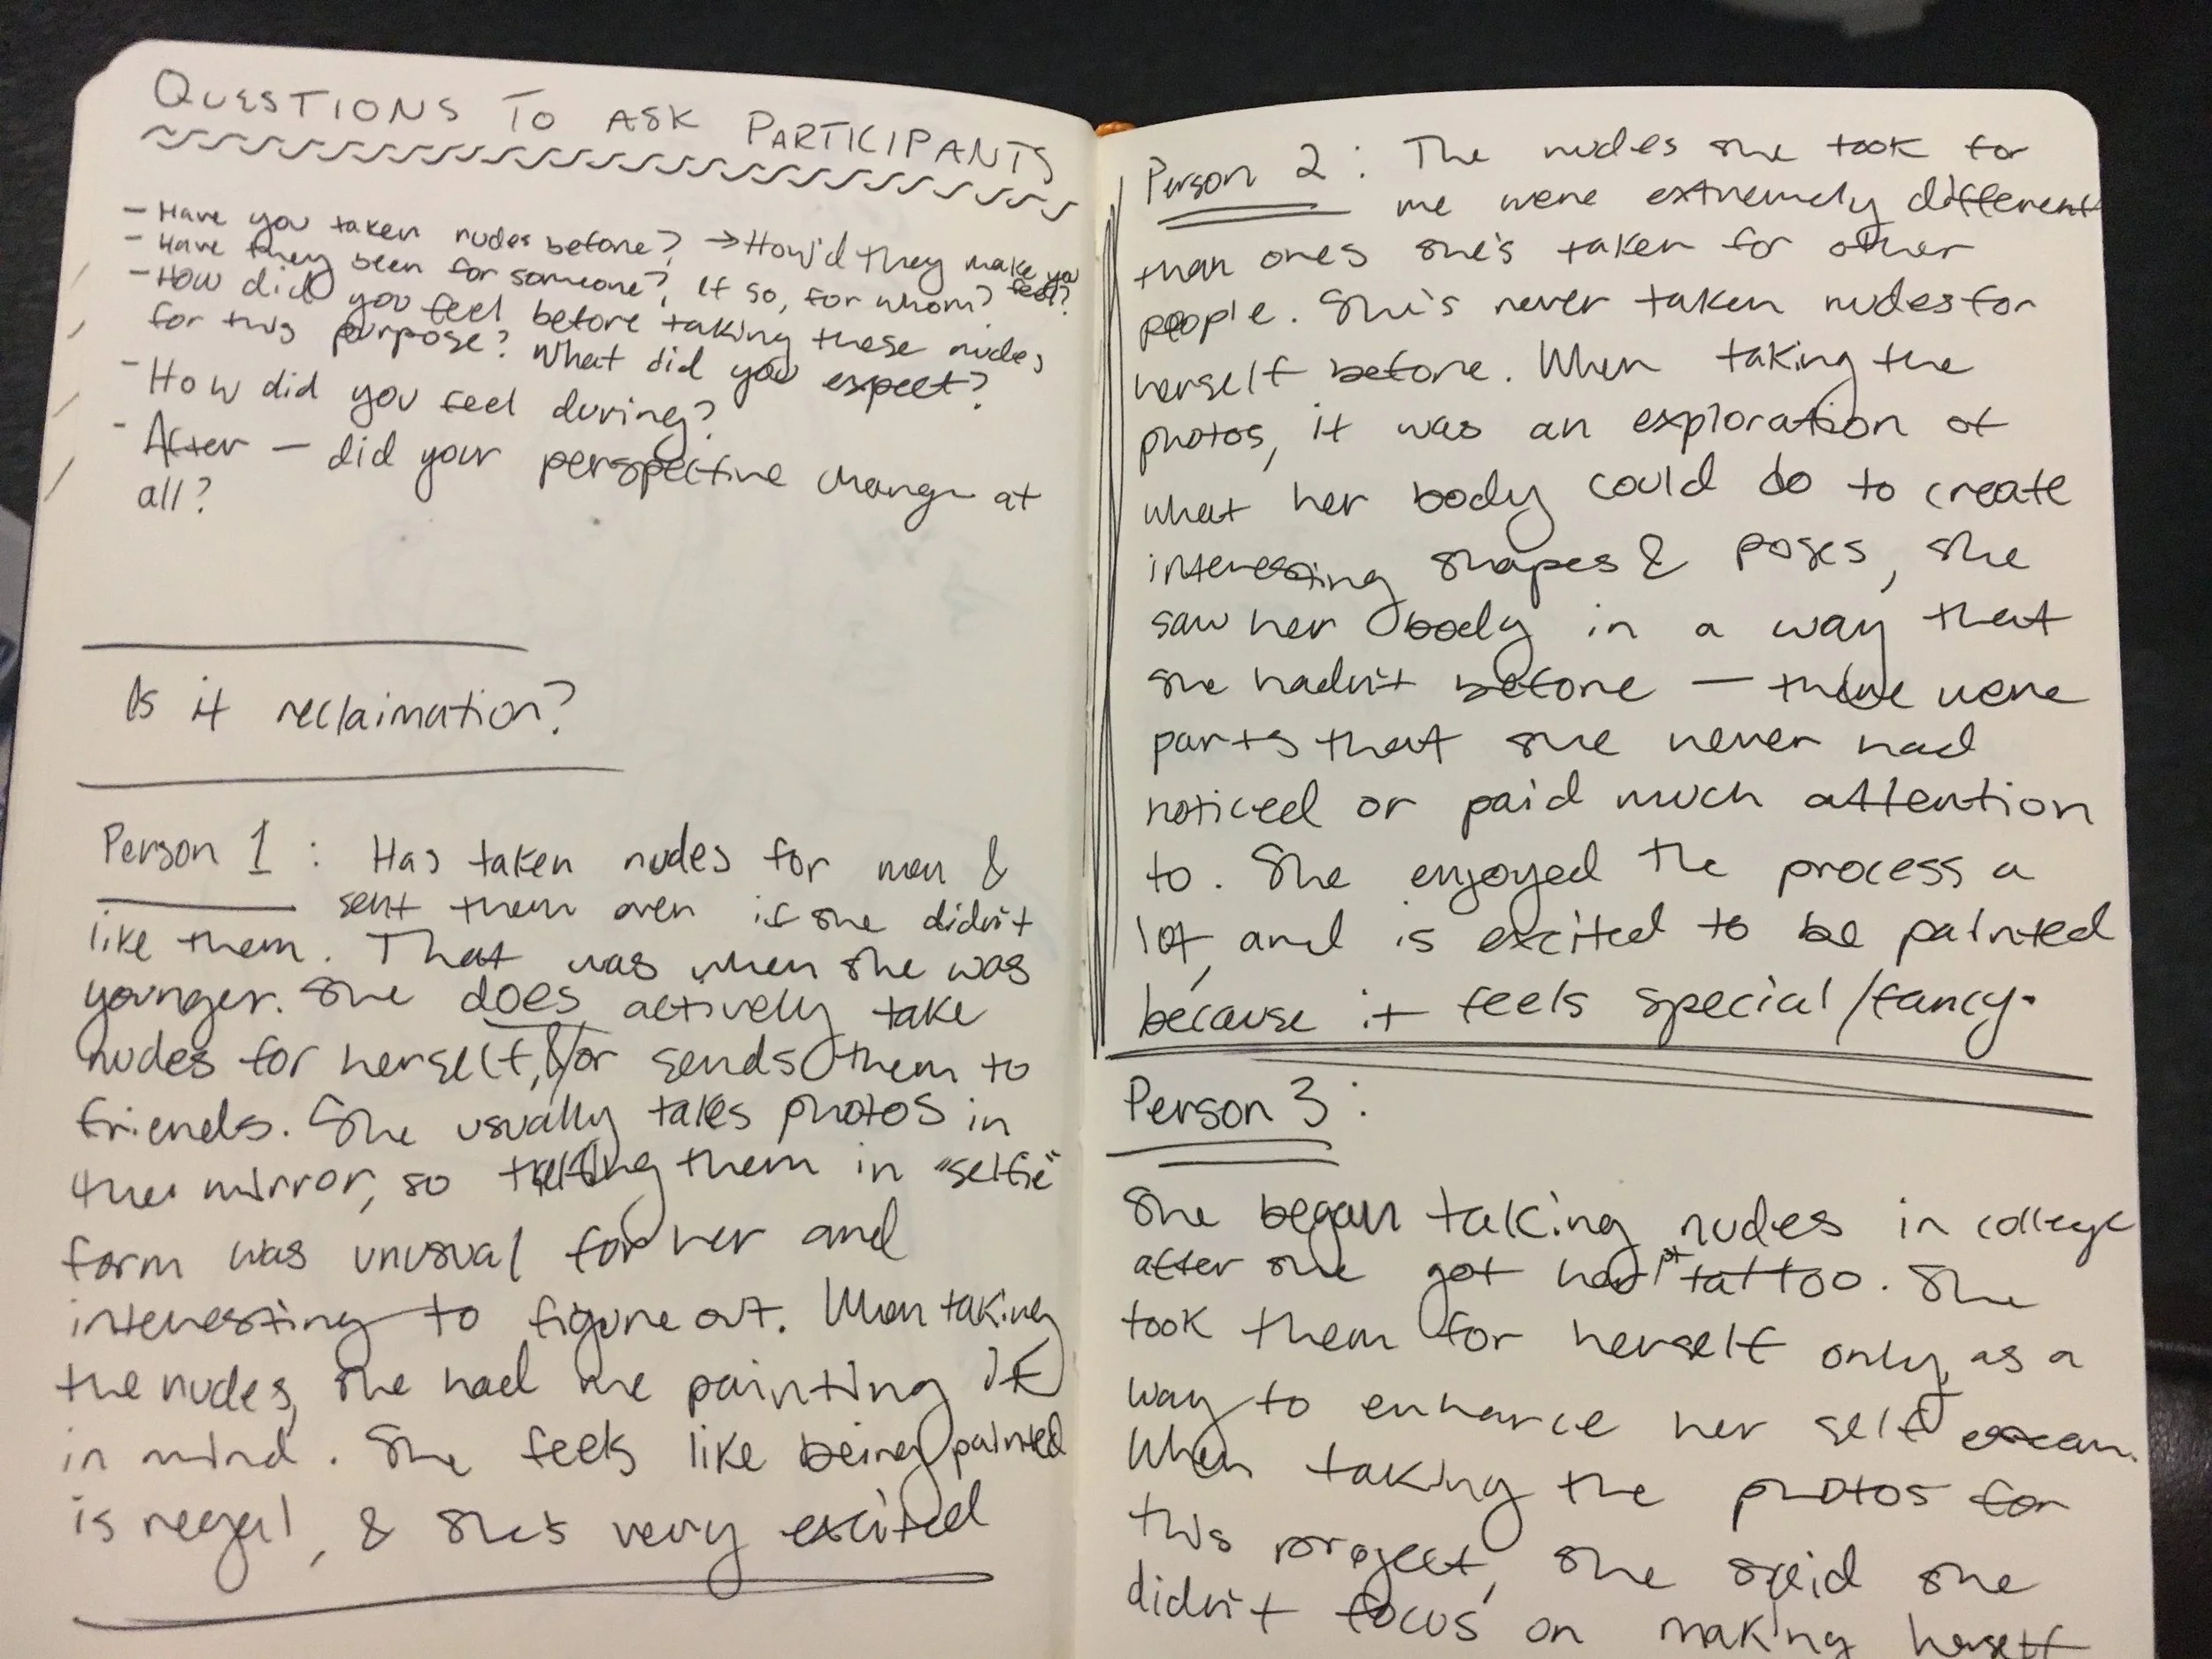 QUESTIONS TO ASK PARTICIPANTS
- Have you taken nudes before? → How'd they make you feel?
- Have they been for someone? If so, for whom?
- How did you feel before taking these nudes
for this purpose? What did you expect?
- How did you feel during?
- After — did your perspective change at
all?
Is it reclaimation?
Person 1 : Has taken nudes for men &
sent them even if she didn't
like them. That was when she was
younger. She does actively take
nudes for herself, &/or sends them to
friends. She usually takes photos in
the mirror, so taking them in "selfie"
form was unusual for her and
interesting to figure out. When taking
the nudes, she had me painting it
in mind. She feels like being painted
is regal, & she's very excited
Person 2 : The nudes she took for
me were extremely different
than ones she's taken for other
people. She's never taken nudes for
herself before. When taking the
photos, it was an exploration of
what her body could do to create
interesting shapes & poses, she
saw her body in a way that
she hadn't before — there were
parts that she never had
noticed or paid much attention
to. She enjoyed the process a
lot, and is excited to be painted
because it feels special/fancy.
Person 3 :
She began taking nudes in college
after she got her 1st tattoo. She
took them for herself only, as a
way to enhance her self esteem.
When taking the photos for
this project, she said she
didn't focus on making herself